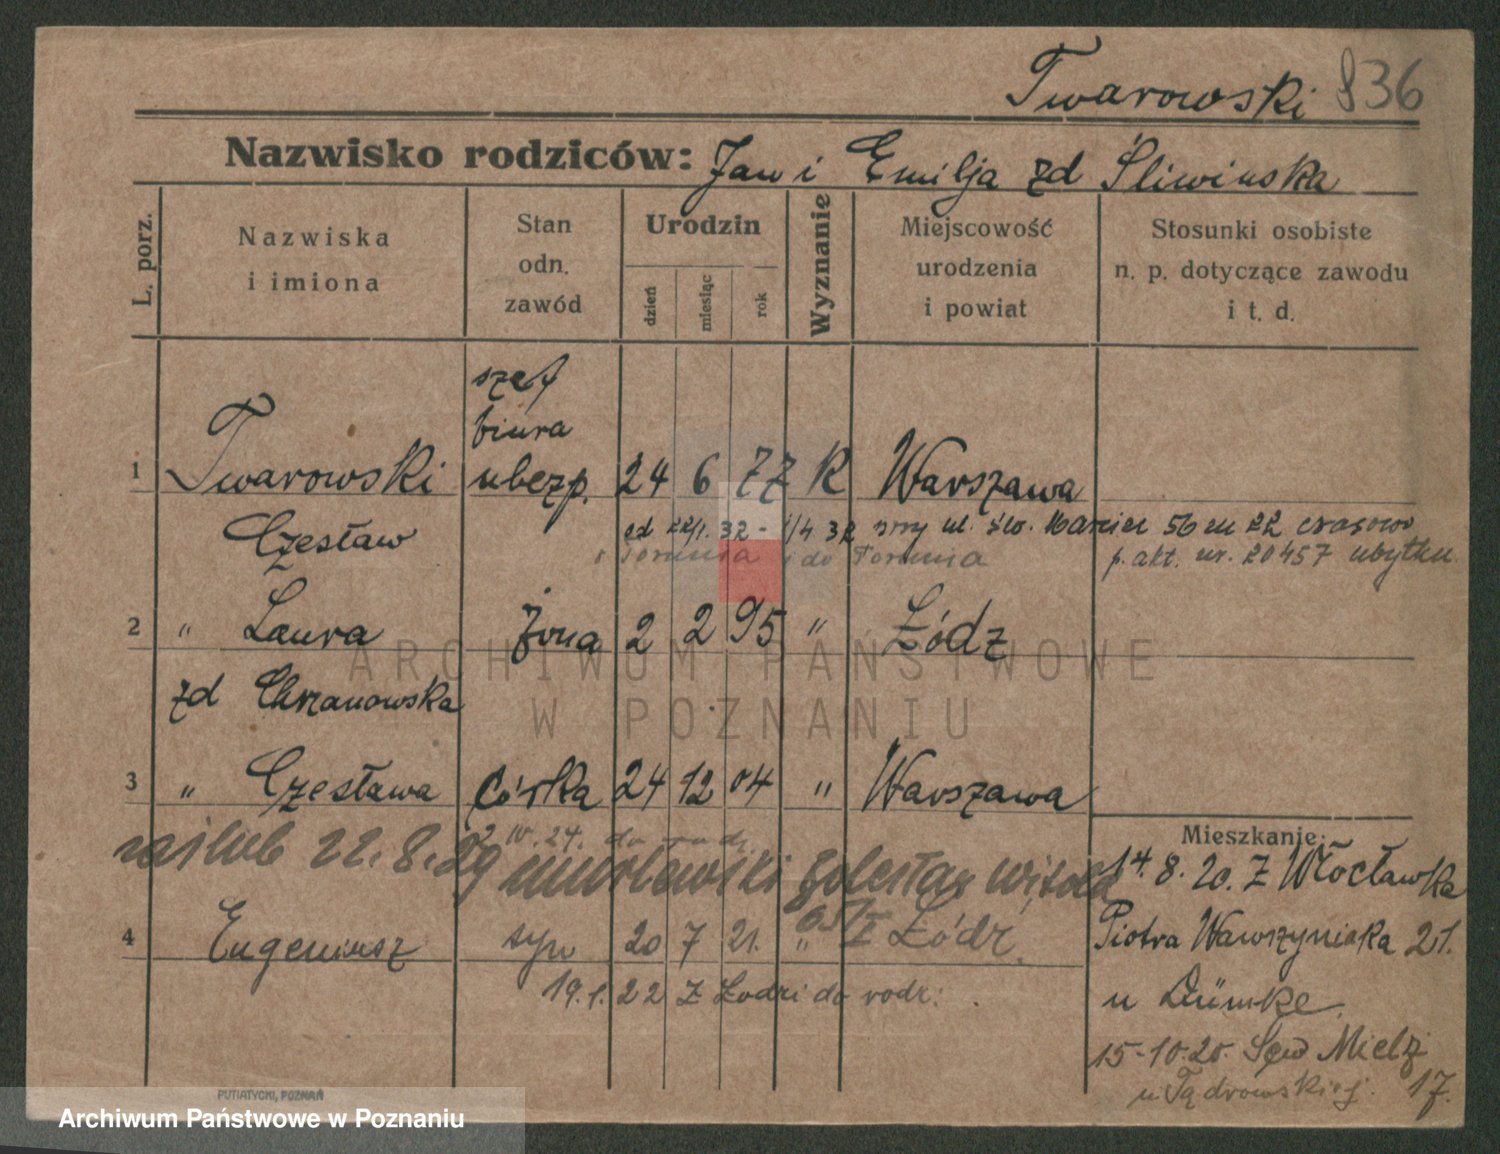 Twarowski 836
Nazwisko rodziców: Jan i Emilja zd Śliwińska
L. porz.
Nazwiska
i imiona
Stan
odn.
zawód
Urodzin
dzień
miesiąc
rok
Wyznanie
Miejscowość
urodzenia
i powiat
Stosunki osobiste
n. p. dotyczące zawodu
i t. d.
szef
biura
1 Twarowski ubezp. 24 6 77 K Warszawa
Czesław
od 22/1. 32 - 1/4 32 przy ul. Św. Marcin 56 m 22 czasowo
z Torunia i do Torunia p. akt. nr. 20457 ubytku
2 " Laura żona 2 2 95 " Łódz
zd Chrzanowska
3 " Czesława córka 24 12 04 " Warszawa
Mieszkanie:
10. 24. do
zaślub 22. 8. 29
14. 8. 20. Z Włocławka
4 Eugeniusz syn 20 7 21. " Łódź
Piotra Wawrzyniaka 21.
19. 1. 22 z Łodzi do rodz:
u Dümke
15-10.20. Sew Mielż
17.
PUTIATYCKI, POZNAŃ
ARCHIWUM PAŃSTWOWE
W POZNANIU
Archiwum Państwowe w Poznaniu